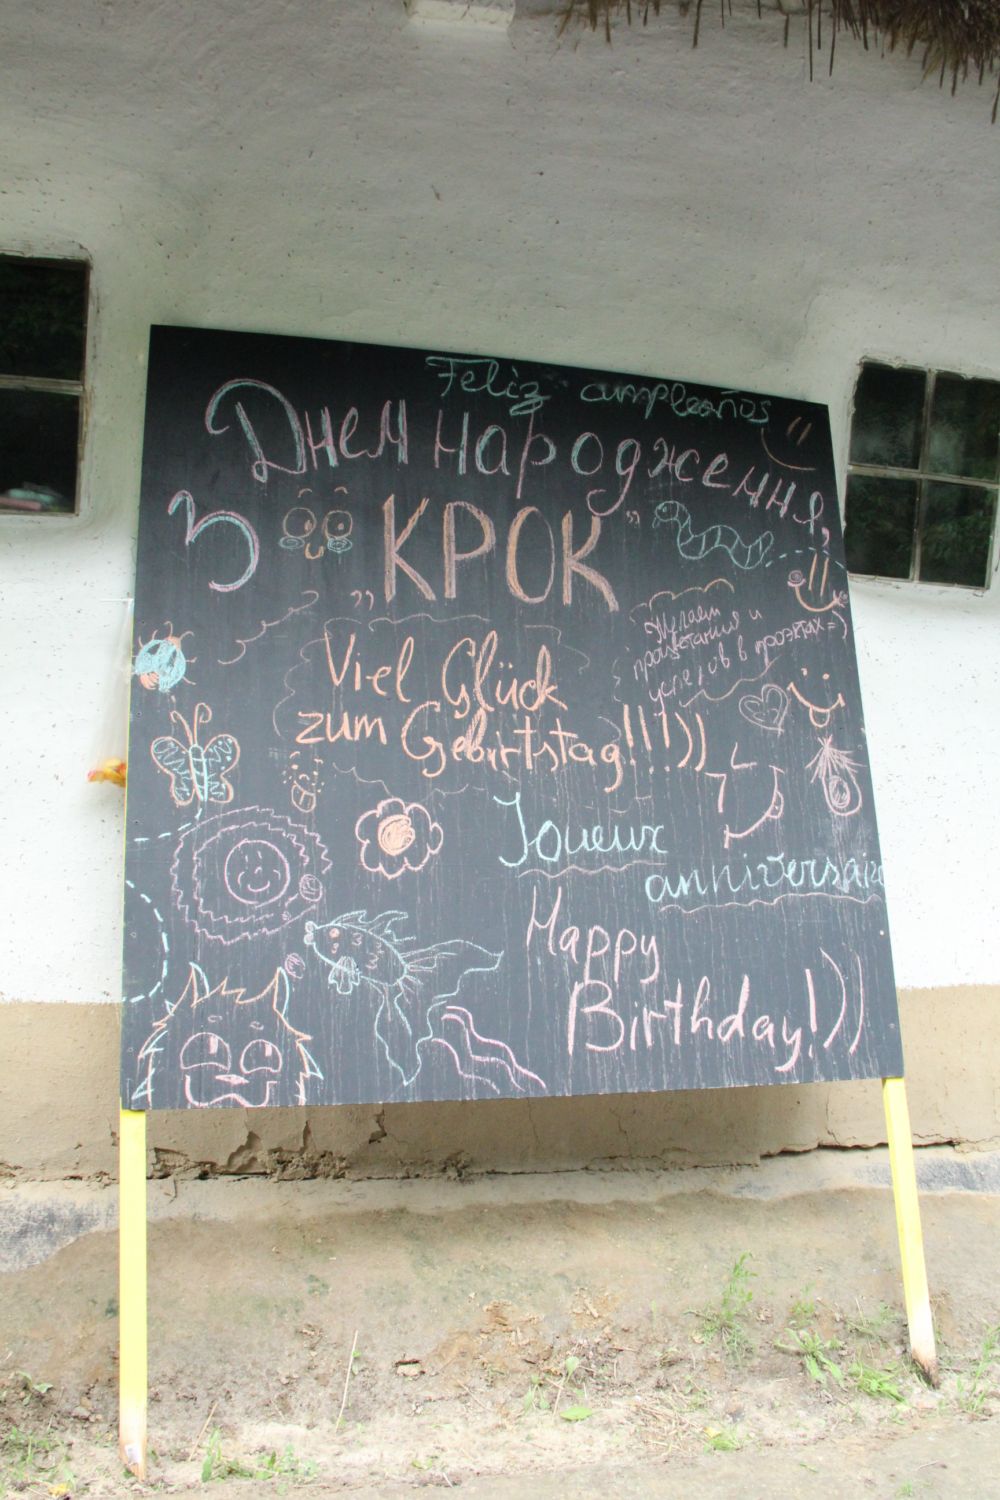 Feliz cumpleaños
Днем народження,
З
„КРОК"
Желаем
процветания и
успехов в проэктах =)
Viel Glück
zum Gebirtstag!!!))
Joueux
anniversaire
Happy
Birthday!))